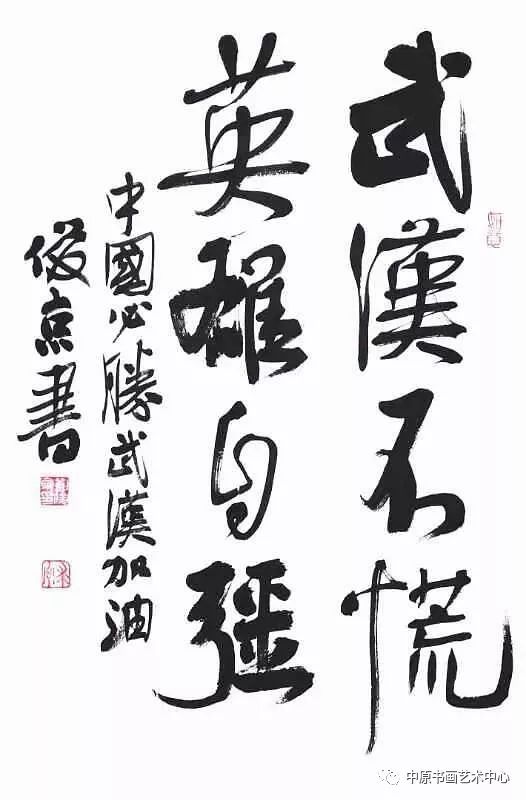 武漢不慌
英雄自强
中國必勝武漢加油
俊点書
中原书画艺术中心